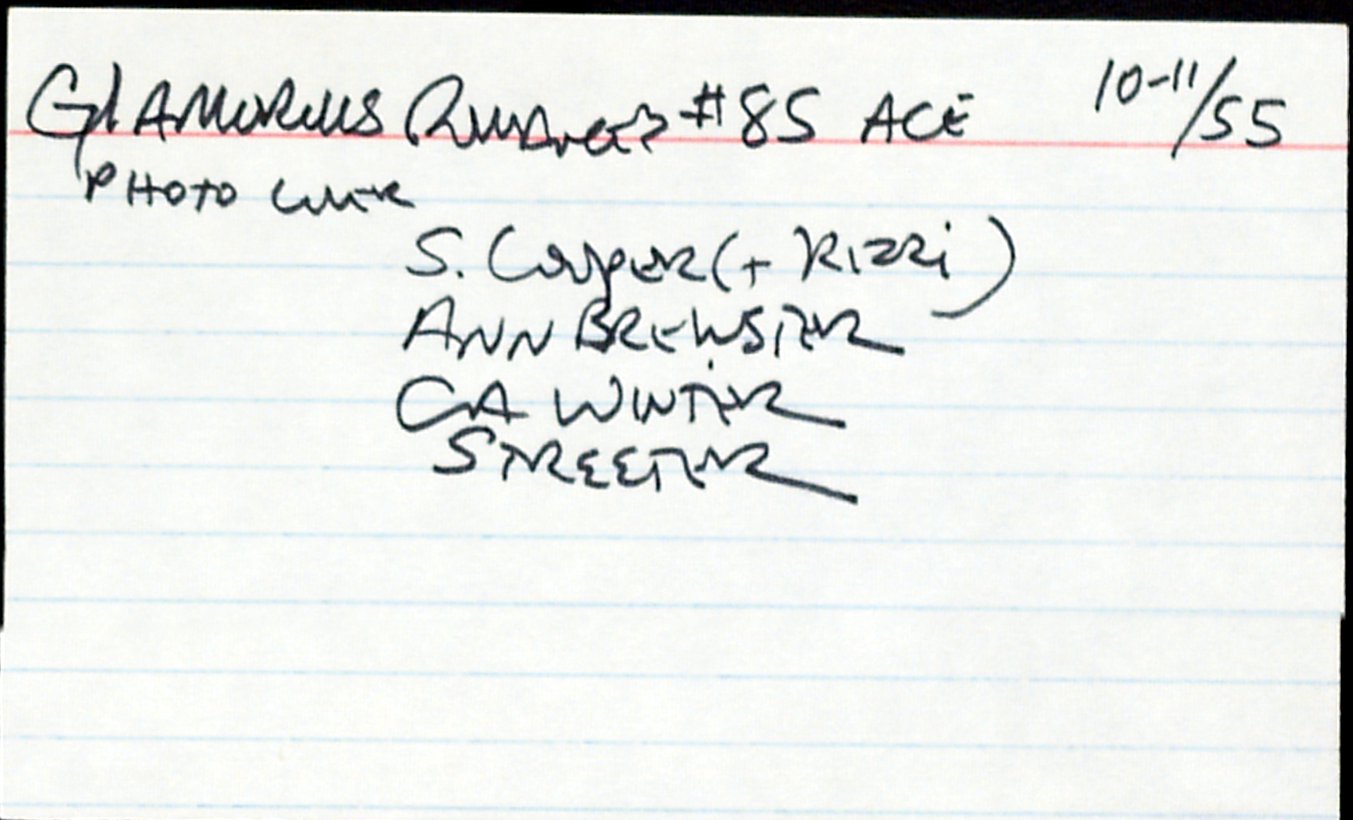 Glamorous Romances #85 ACE 10-11/55
PHOTO COVER
S. Cooper (+ Rizzi)
ANN BREWSTER
CA WINTER
STREETER